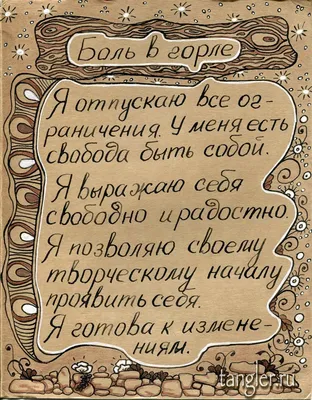 Боль в горле
Я отпускаю все ог-
раничения. У меня есть
свобода быть собой.
Я выражаю себя
свободно и радостно.
Я позволяю своему
творческому началу
проявить себя.
Я готова к измене-
ниям.
tangler.ru